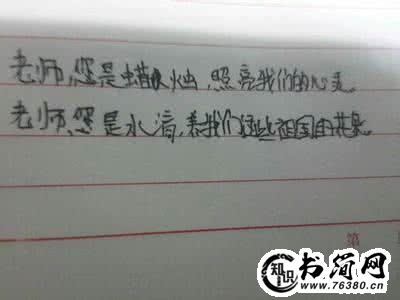 老师,您是蜡烛,照亮我们的心灵。
老师,您是水滴,养我们这些祖国的花朵。
第
知识
书简网
www.76380.cn